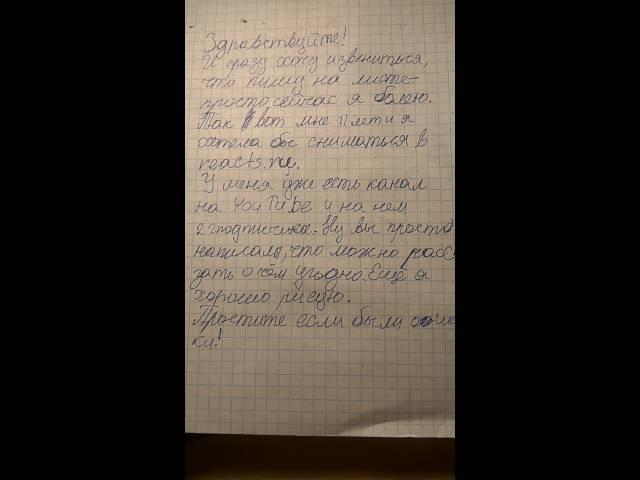 Здравствуйте!
И сразу хочу извениться,
что пишу на листе-
просто сейчас я болею.
Так вот мне 11 лет и я
хотела бы сниматься в
reacts.ru.
У меня уже есть канал
на YouTube и на нем
2 подписчика. Ну вы просто
написали, что можно расс
зать о чём угодно. Ещё я
хорошо рисую.
Простите если были оши
ки!